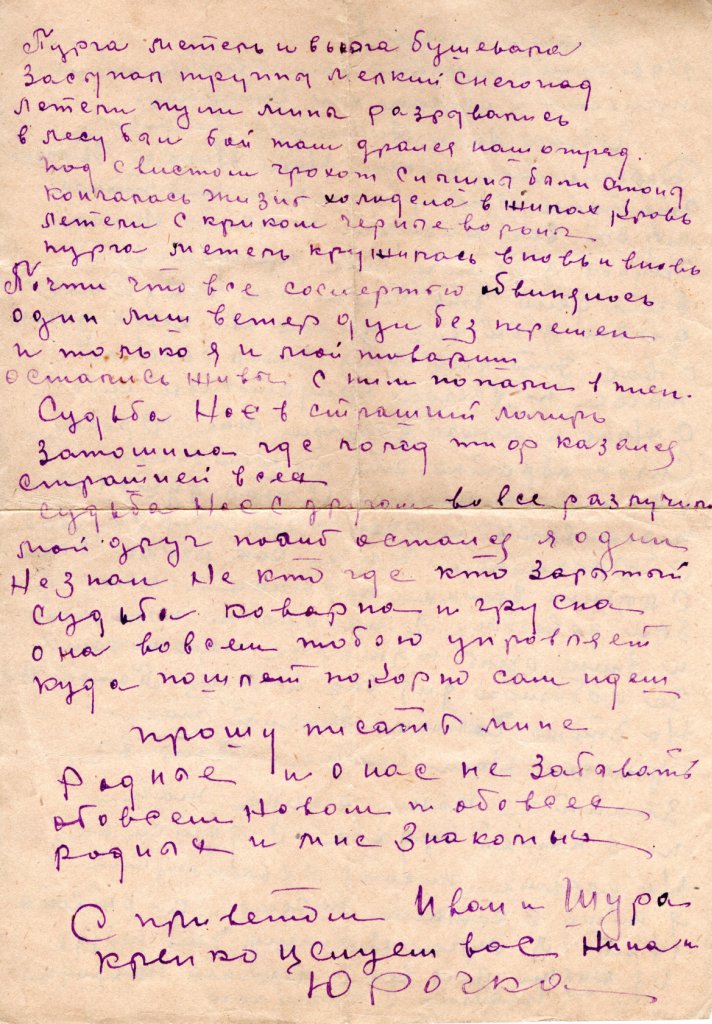 Пурга метель и вьюга бушевала
Засыпал трупы мелкий снегопад
летели пули мины разрывались
в лесу был бой там дрался наш отряд.
под свистом грохот слышны были стоны
кончалась жизнь холодела в жилах кровь
летели с криком черные вороны
пурга метель кружилась вновь и вновь
Почти что все сосмертью обвинялось
один лиш ветер дул без перемен
и только я и мой товарищ
остались живы с ним попали в плен.
Судьба Нас в страшний лагирь
затошила где голод тиф казался
страшней всех
судьба Нас с другом вовсе разлучила
мой друг погиб остался я один
Не знал Не кто где кто зарытый
Судьба коварна и грусна
она вовсем тобою управляет
куда пошлет покорно сам идеш
прошу писать мине
Родные и о нас не забывать
обовсем новом и обовсех
родных и мне знакомых
С приветом Иван и Шура
крепко целуем вас Нина и
Юрочка